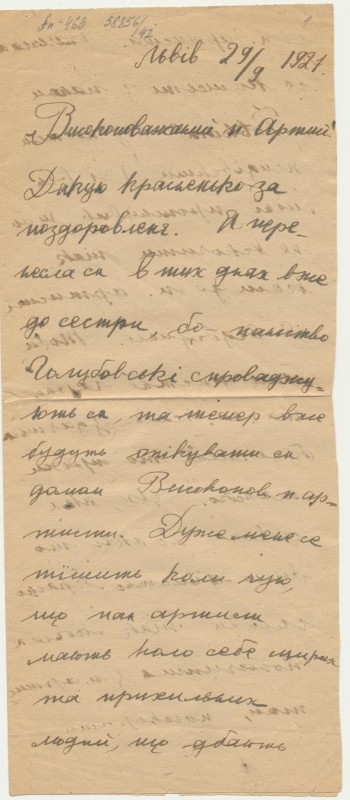 Ап-463 58856/42
1
Львів 29/9 1921.
Високоповажаний п. Артист
Дякую красненько за
поздоровленє. Я пере-
несла ся в тих днях вже
до сестри, бо панство
Голубовські спроваджу-
ють ся, та тепер вже
будуть опікувати ся
домом Високопов. п. ар-
тисти. Дуже мене се
тішить коли чую,
що пан артист
мають коло себе щирих
та прихильних
людий, що дбають